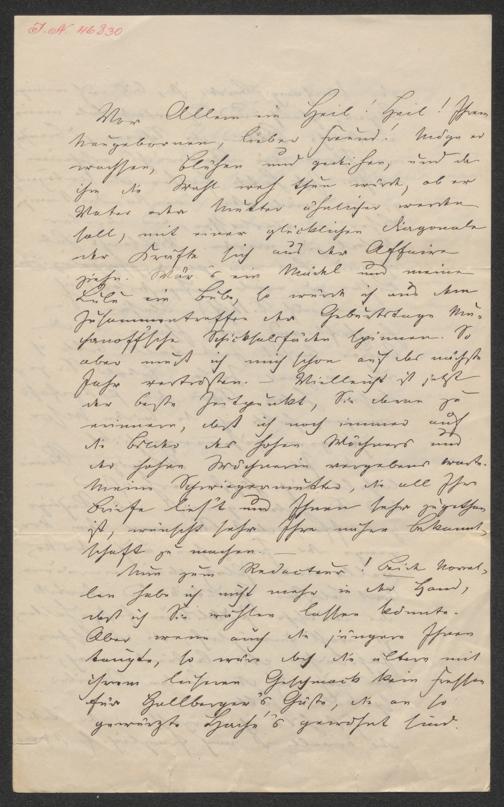 I. N. 46330
Vor Allem ein Heil! Heil! Ihrem
Neugebornen, lieber Freund! Möge er
wachsen, blühen und gedeihen, und da
ihm die Wahl weh thun würde, ob er
Vater oder Mutter ähnlicher werden
soll, mit einer glücklichen Diagonale
der Kräfte sich aus der Affaire
ziehn. Wär's ein Mädel und meine
Lulu ein Bube, so würde ich aus dem
Zusammentreffen der Geburtstage
Schicksalsfäden spinnen. So
aber muß ich mich schon auf das nächste
Jahr vertrösten. – Vielleicht ist jetzt
der beste Zeitpunkt, Sie daran zu
erinnern, daß ich noch immer auf
die Bilder des hohen Wöchners und
der hohen Wöchnerin vergebens warte.
Meine Schwiegermutter, die all Ihre
Briefe liest und Ihnen sehr zugethan
ist, wünscht sehr Ihre nähere Bekannt-
schaft zu machen. –
Nun zum Redacteur! Beide Novel-
len habe ich nicht mehr in der Hand,
daß ich Sie wählen lassen könnte.
Aber wenn auch die jüngere Ihnen
taugte, so wäre doch die ältere mit
ihrem Geschmack kein Fressen
für Hallberger's Gäste, die an so
gewürzte Haché's gewöhnt sind.